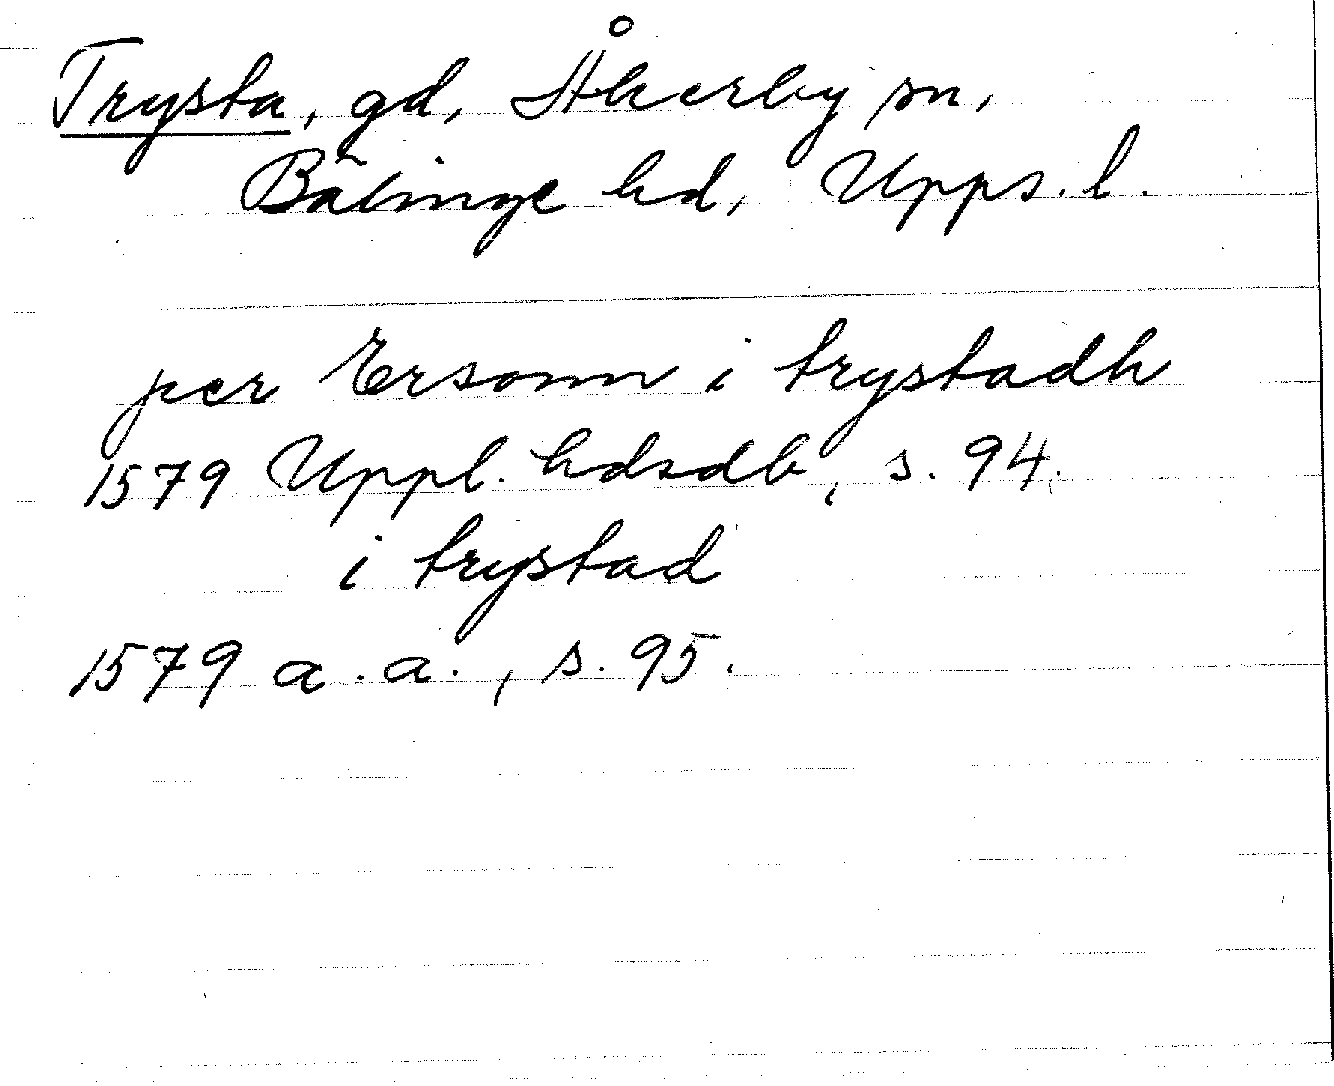 Trysta, gd, Åkerby sn,
Bälinge hd, Upps. l.
per Ersonn i trystadh
1579 Uppl. hdsdb, s. 94.
i trystad
1579 a.a., s. 95.